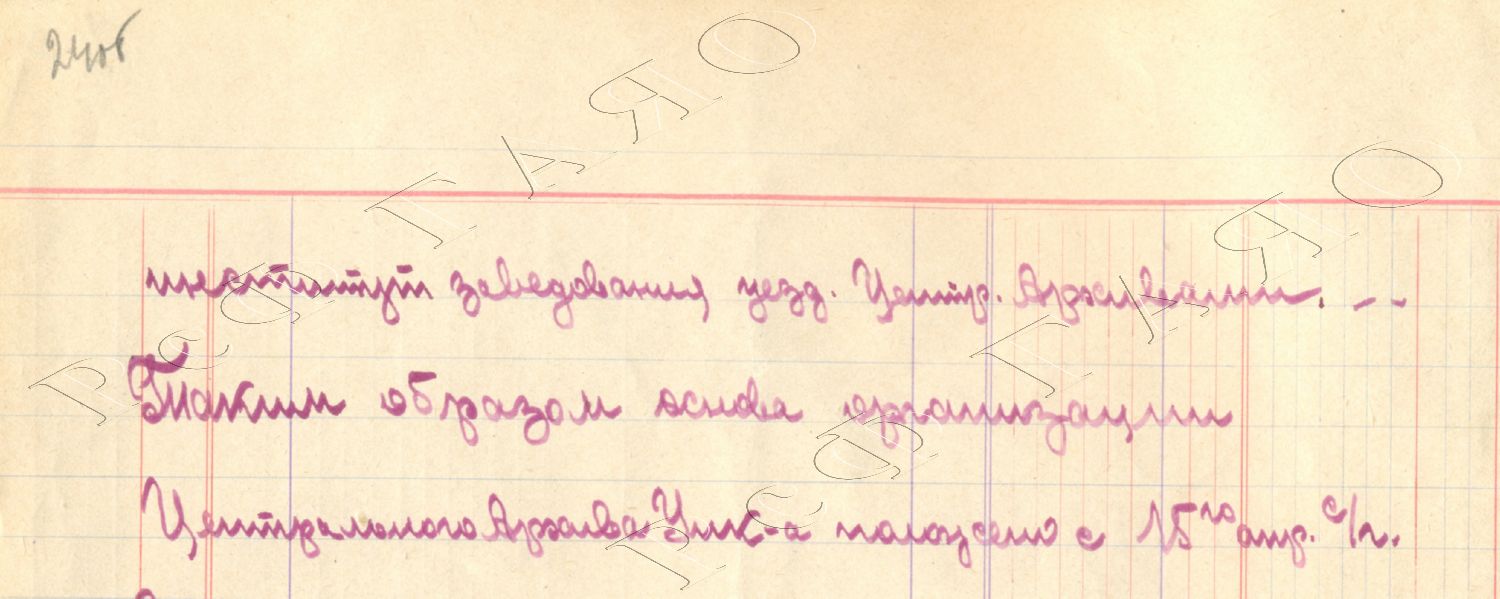 24об
институт заведования уезд. Центр. Архивами. --
Таким образом основа организации
Центрального Архива Уик-а положено с 15го апр. с/г.
РсФ ГАЯО
РсФ ГАЯО